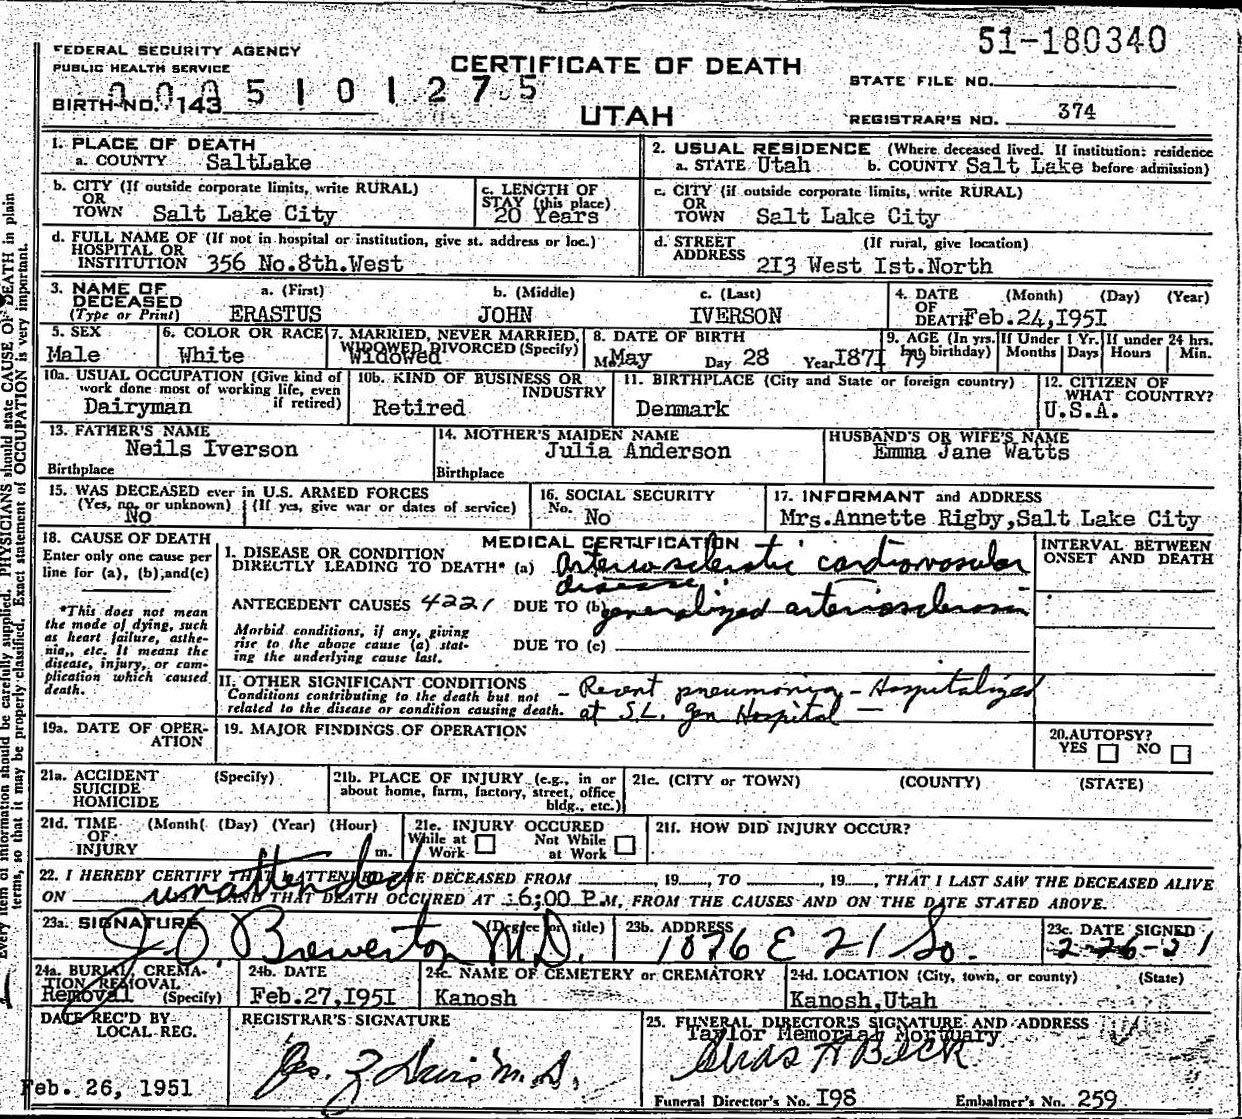 51-180340
FEDERAL SECURITY AGENCY
PUBLIC HEALTH SERVICE
CERTIFICATE OF DEATH
STATE FILE NO.
0005101275
BIRTH NO. 143
UTAH
REGISTRAR'S NO. 374
1. PLACE OF DEATH
a. COUNTY SaltLake
2. USUAL RESIDENCE (Where deceased lived. If institution: residence
a. STATE Utah b. COUNTY Salt Lake before admission)
b. CITY (If outside corporate limits, write RURAL)
OR
TOWN Salt Lake City
c. LENGTH OF
STAY (this place)
20 Years
c. CITY (if outside corporate limits, write RURAL)
OR
TOWN Salt Lake City
d. FULL NAME OF (If not in hospital or institution, give st. address or loc.)
HOSPITAL OR
INSTITUTION 356 No.8th.West
d. STREET (If rural, give location)
ADDRESS
213 West Ist.North
3. NAME OF
DECEASED
(Type or Print)
a. (First)
ERASTUS
b. (Middle)
JOHN
c. (Last)
IVERSON
4. DATE (Month) (Day) (Year)
OF
DEATH Feb.24,1951
5. SEX
Male
6. COLOR OR RACE
White
7. MARRIED, NEVER MARRIED,
WIDOWED, DIVORCED (Specify)
Widowed
8. DATE OF BIRTH
Mo. May Day 28 Year 1871
9. AGE (In yrs.
birthday)
79
If Under 1 Yr.
Months Days
If under 24 hrs.
Hours Min.
10a. USUAL OCCUPATION (Give kind of
work done most of working life, even
if retired)
Dairyman
10b. KIND OF BUSINESS OR
INDUSTRY
Retired
11. BIRTHPLACE (City and State or foreign country)
Denmark
12. CITIZEN OF
WHAT COUNTRY?
U.S.A.
13. FATHER'S NAME
Neils Iverson
Birthplace
14. MOTHER'S MAIDEN NAME
Julia Anderson
Birthplace
HUSBAND'S OR WIFE'S NAME
Emma Jane Watts
15. WAS DECEASED ever in U.S. ARMED FORCES
(Yes, no, or unknown) (If yes, give war or dates of service)
No
16. SOCIAL SECURITY
No. No
17. INFORMANT and ADDRESS
Mrs.Annette Rigby,Salt Lake City
18. CAUSE OF DEATH
Enter only one cause per
line for (a), (b),and(c)
*This does not mean
the mode of dying, such
as heart failure, asthe-
nia,, etc. It means the
disease, injury, or com-
plication which caused
death.
MEDICAL CERTIFICATION
1. DISEASE OR CONDITION
DIRECTLY LEADING TO DEATH* (a) Arteriosclerotic cardiovascular
disease
ANTECEDENT CAUSES 4221 DUE TO (b) generalized arteriosclerosis
Morbid conditions, if any, giving
rise to the above cause (a) stat-
ing the underlying cause last.
DUE TO (c)
II. OTHER SIGNIFICANT CONDITIONS
Conditions contributing to the death but not
related to the disease or condition causing death.
- Recent pneumonia - Hospitalized
at S.L. Gen Hospital —
INTERVAL BETWEEN
ONSET AND DEATH
19a. DATE OF OPER-
ATION
19. MAJOR FINDINGS OF OPERATION
20.AUTOPSY?
YES NO
21a. ACCIDENT (Specify)
SUICIDE
HOMICIDE
21b. PLACE OF INJURY (e.g., in or
about home, farm, factory, street, office
bldg., etc.)
21c. (CITY or TOWN) (COUNTY) (STATE)
21d. TIME (Month( (Day) (Year) (Hour)
OF
INJURY m.
21e. INJURY OCCURED
While at Work
Not While at Work
21f. HOW DID INJURY OCCUR?
22. I HEREBY CERTIFY THAT I ATTENDED THE DECEASED FROM ______, 19___, TO ______, 19___, THAT I LAST SAW THE DECEASED ALIVE
unattended
ON ______ AND THAT DEATH OCCURED AT 6;00 P.M, FROM THE CAUSES AND ON THE DATE STATED ABOVE.
23a. SIGNATURE (Degree or title)
J.O. Brewerton M.D.
23b. ADDRESS
1076 E 21 So.
23c. DATE SIGNED
2-26-51
24a. BURIAL, CREMA-
TION REMOVAL
Removal (Specify)
24b. DATE
Feb.27,1951
24c. NAME OF CEMETERY or CREMATORY
Kanosh
24d. LOCATION (City, town, or county) (State)
Kanosh,Utah
DATE REC'D BY
LOCAL REG.
Feb. 26, 1951
REGISTRAR'S SIGNATURE
25. FUNERAL DIRECTOR'S SIGNATURE AND ADDRESS
Taylor Memorial Mortuary
Beck
Funeral Director's No. 198 Embalmer's No. 259
Every item of information should be carefully supplied. PHYSICIANS should state CAUSE OF DEATH in plain
terms, so that it may be properly classified. Exact statement of OCCUPATION is very important.